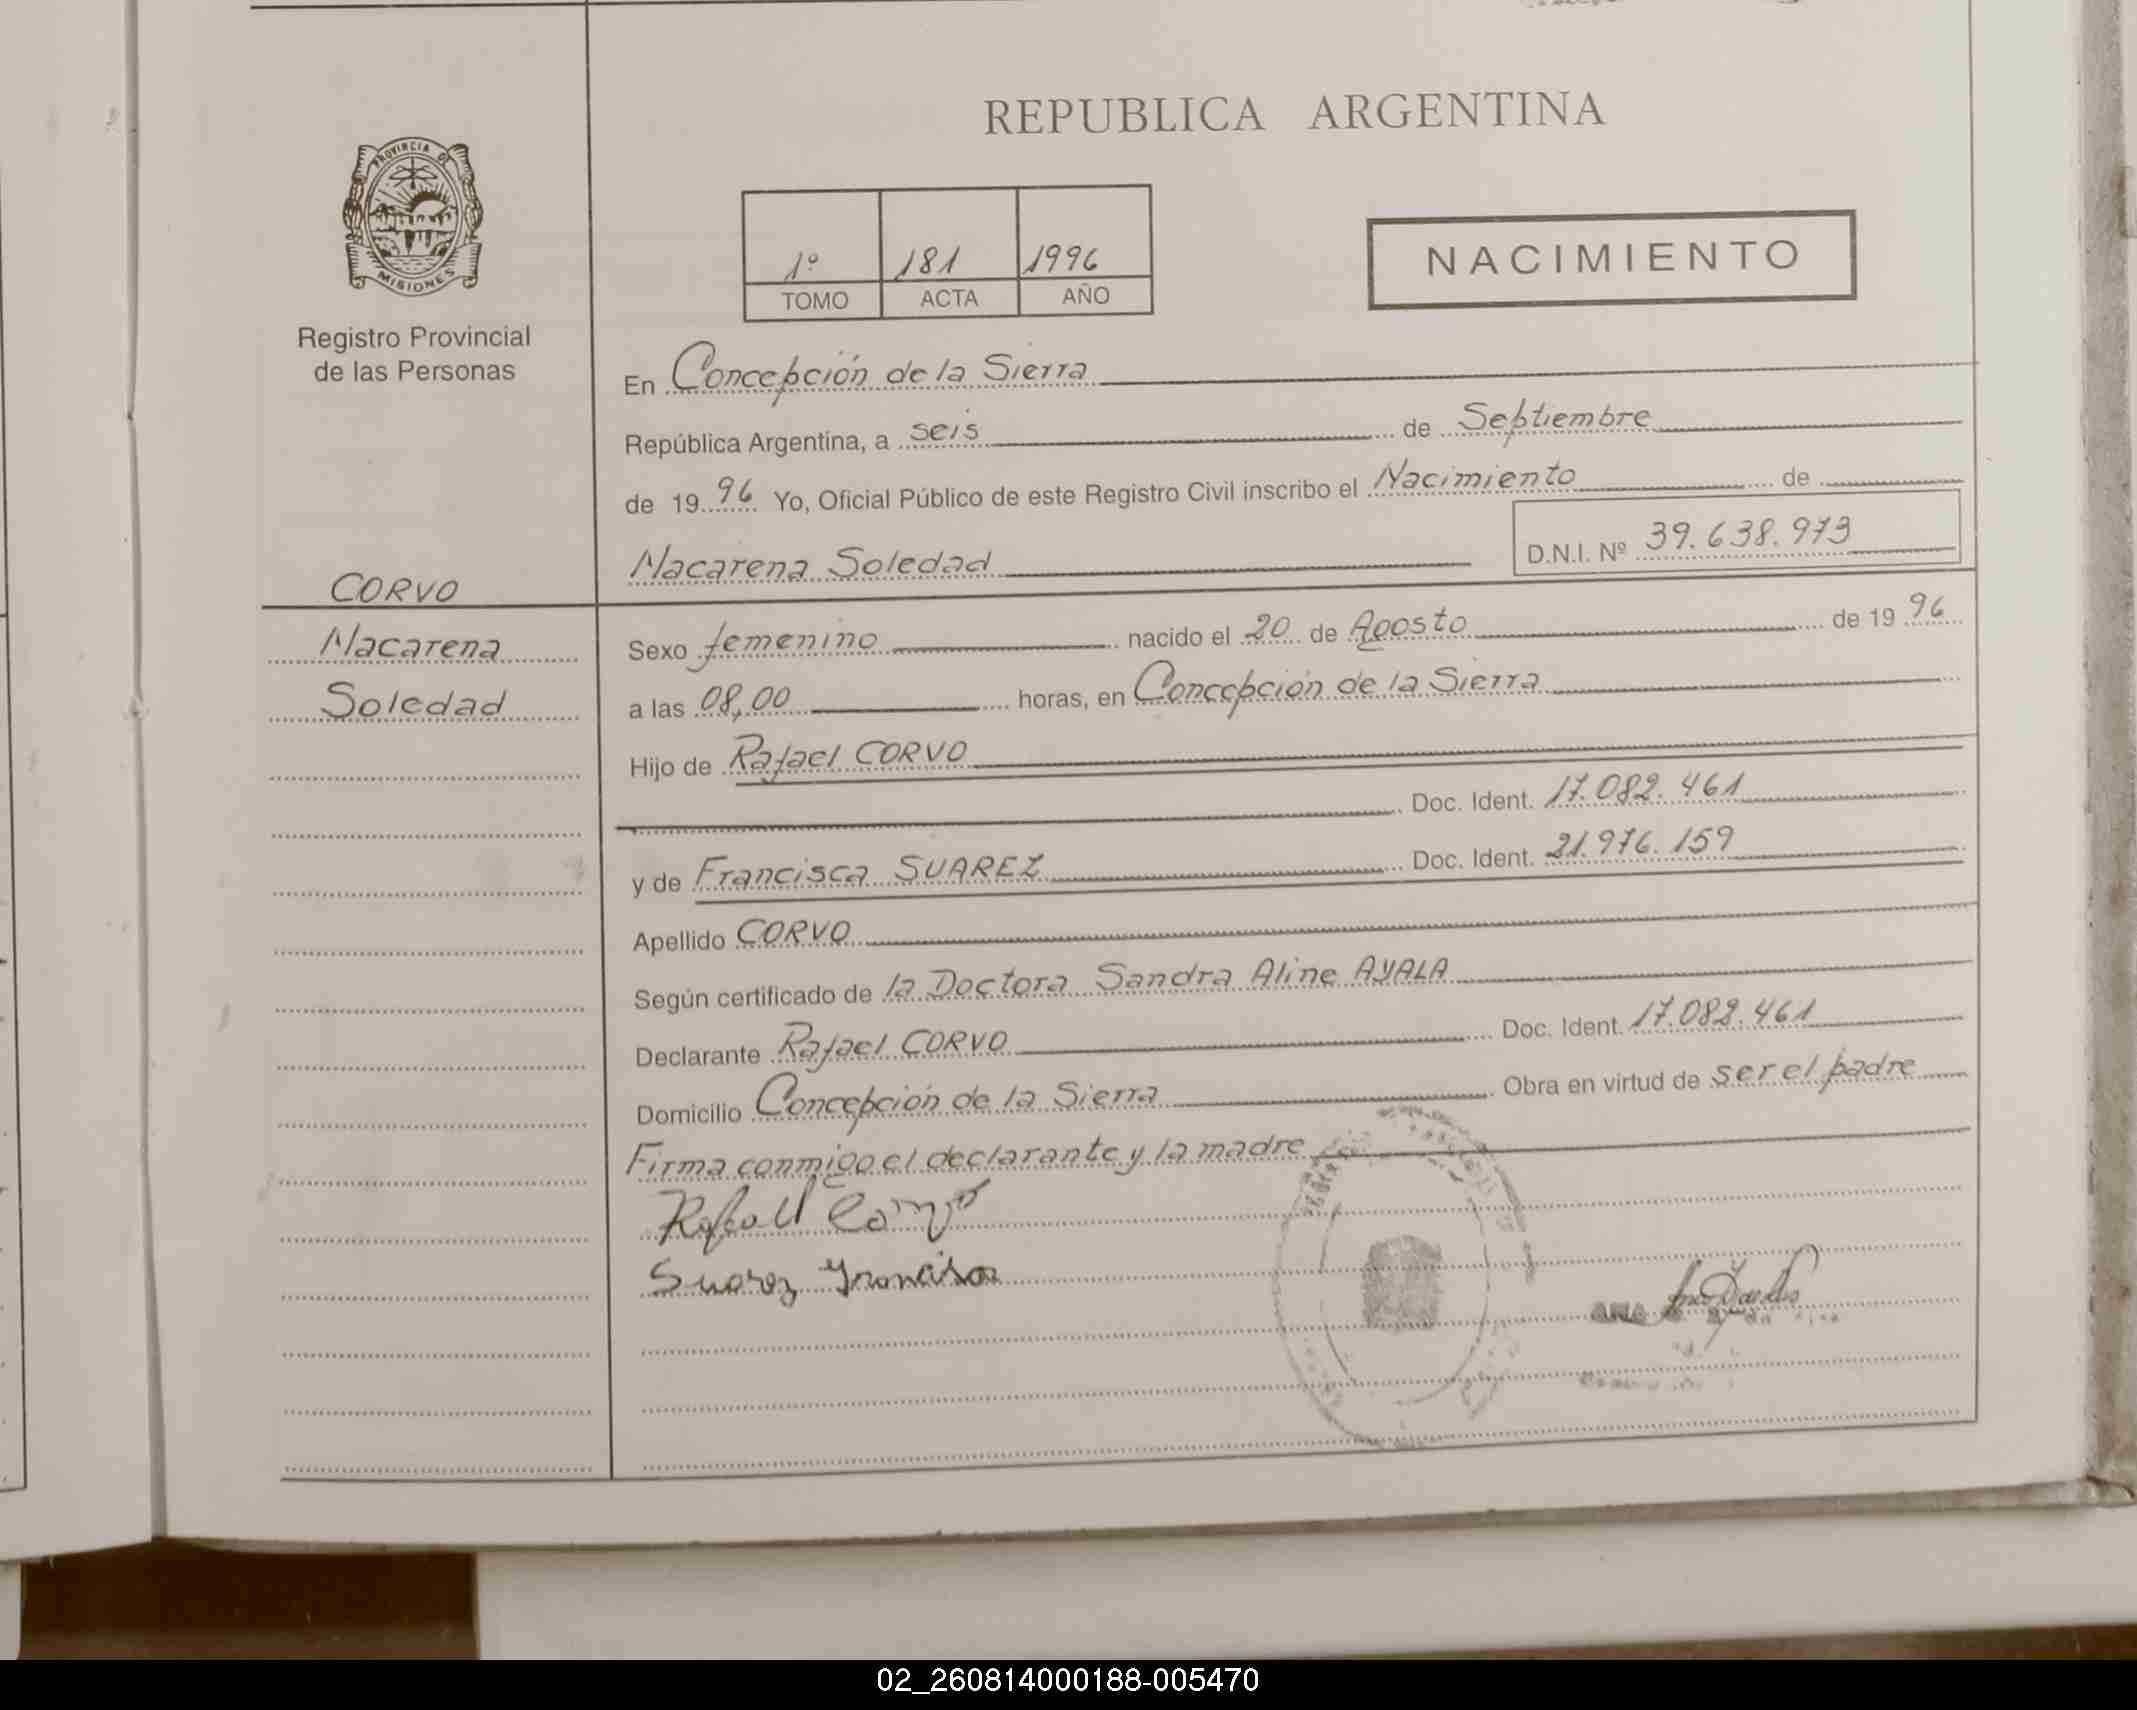 REPUBLICA ARGENTINA
PROVINCIA DE
MISIONES
Registro Provincial
de las Personas
1º 181 1996
TOMO ACTA AÑO
NACIMIENTO
En Concepción de la Sierra
República Argentina, a seis de Septiembre
de 1996 Yo, Oficial Público de este Registro Civil inscribo el Nacimiento de
Macarena Soledad D.N.I. Nº 39.638.973
CORVO
Macarena
Soledad
Sexo femenino nacido el 20 de Agosto de 1996
a las 08,00 horas, en Concepción de la Sierra
Hijo de Rafael CORVO
Doc. Ident. 17.082.461
y de Francisca SUAREZ Doc. Ident. 21.976.159
Apellido CORVO
Según certificado de la Doctora Sandra Aline AYALA
Declarante Rafael CORVO Doc. Ident. 17.082.461
Domicilio Concepción de la Sierra Obra en virtud de ser el padre
Firma conmigo el declarante y la madre
Rafael Corvo
Suarez Francisca
02_260814000188-005470